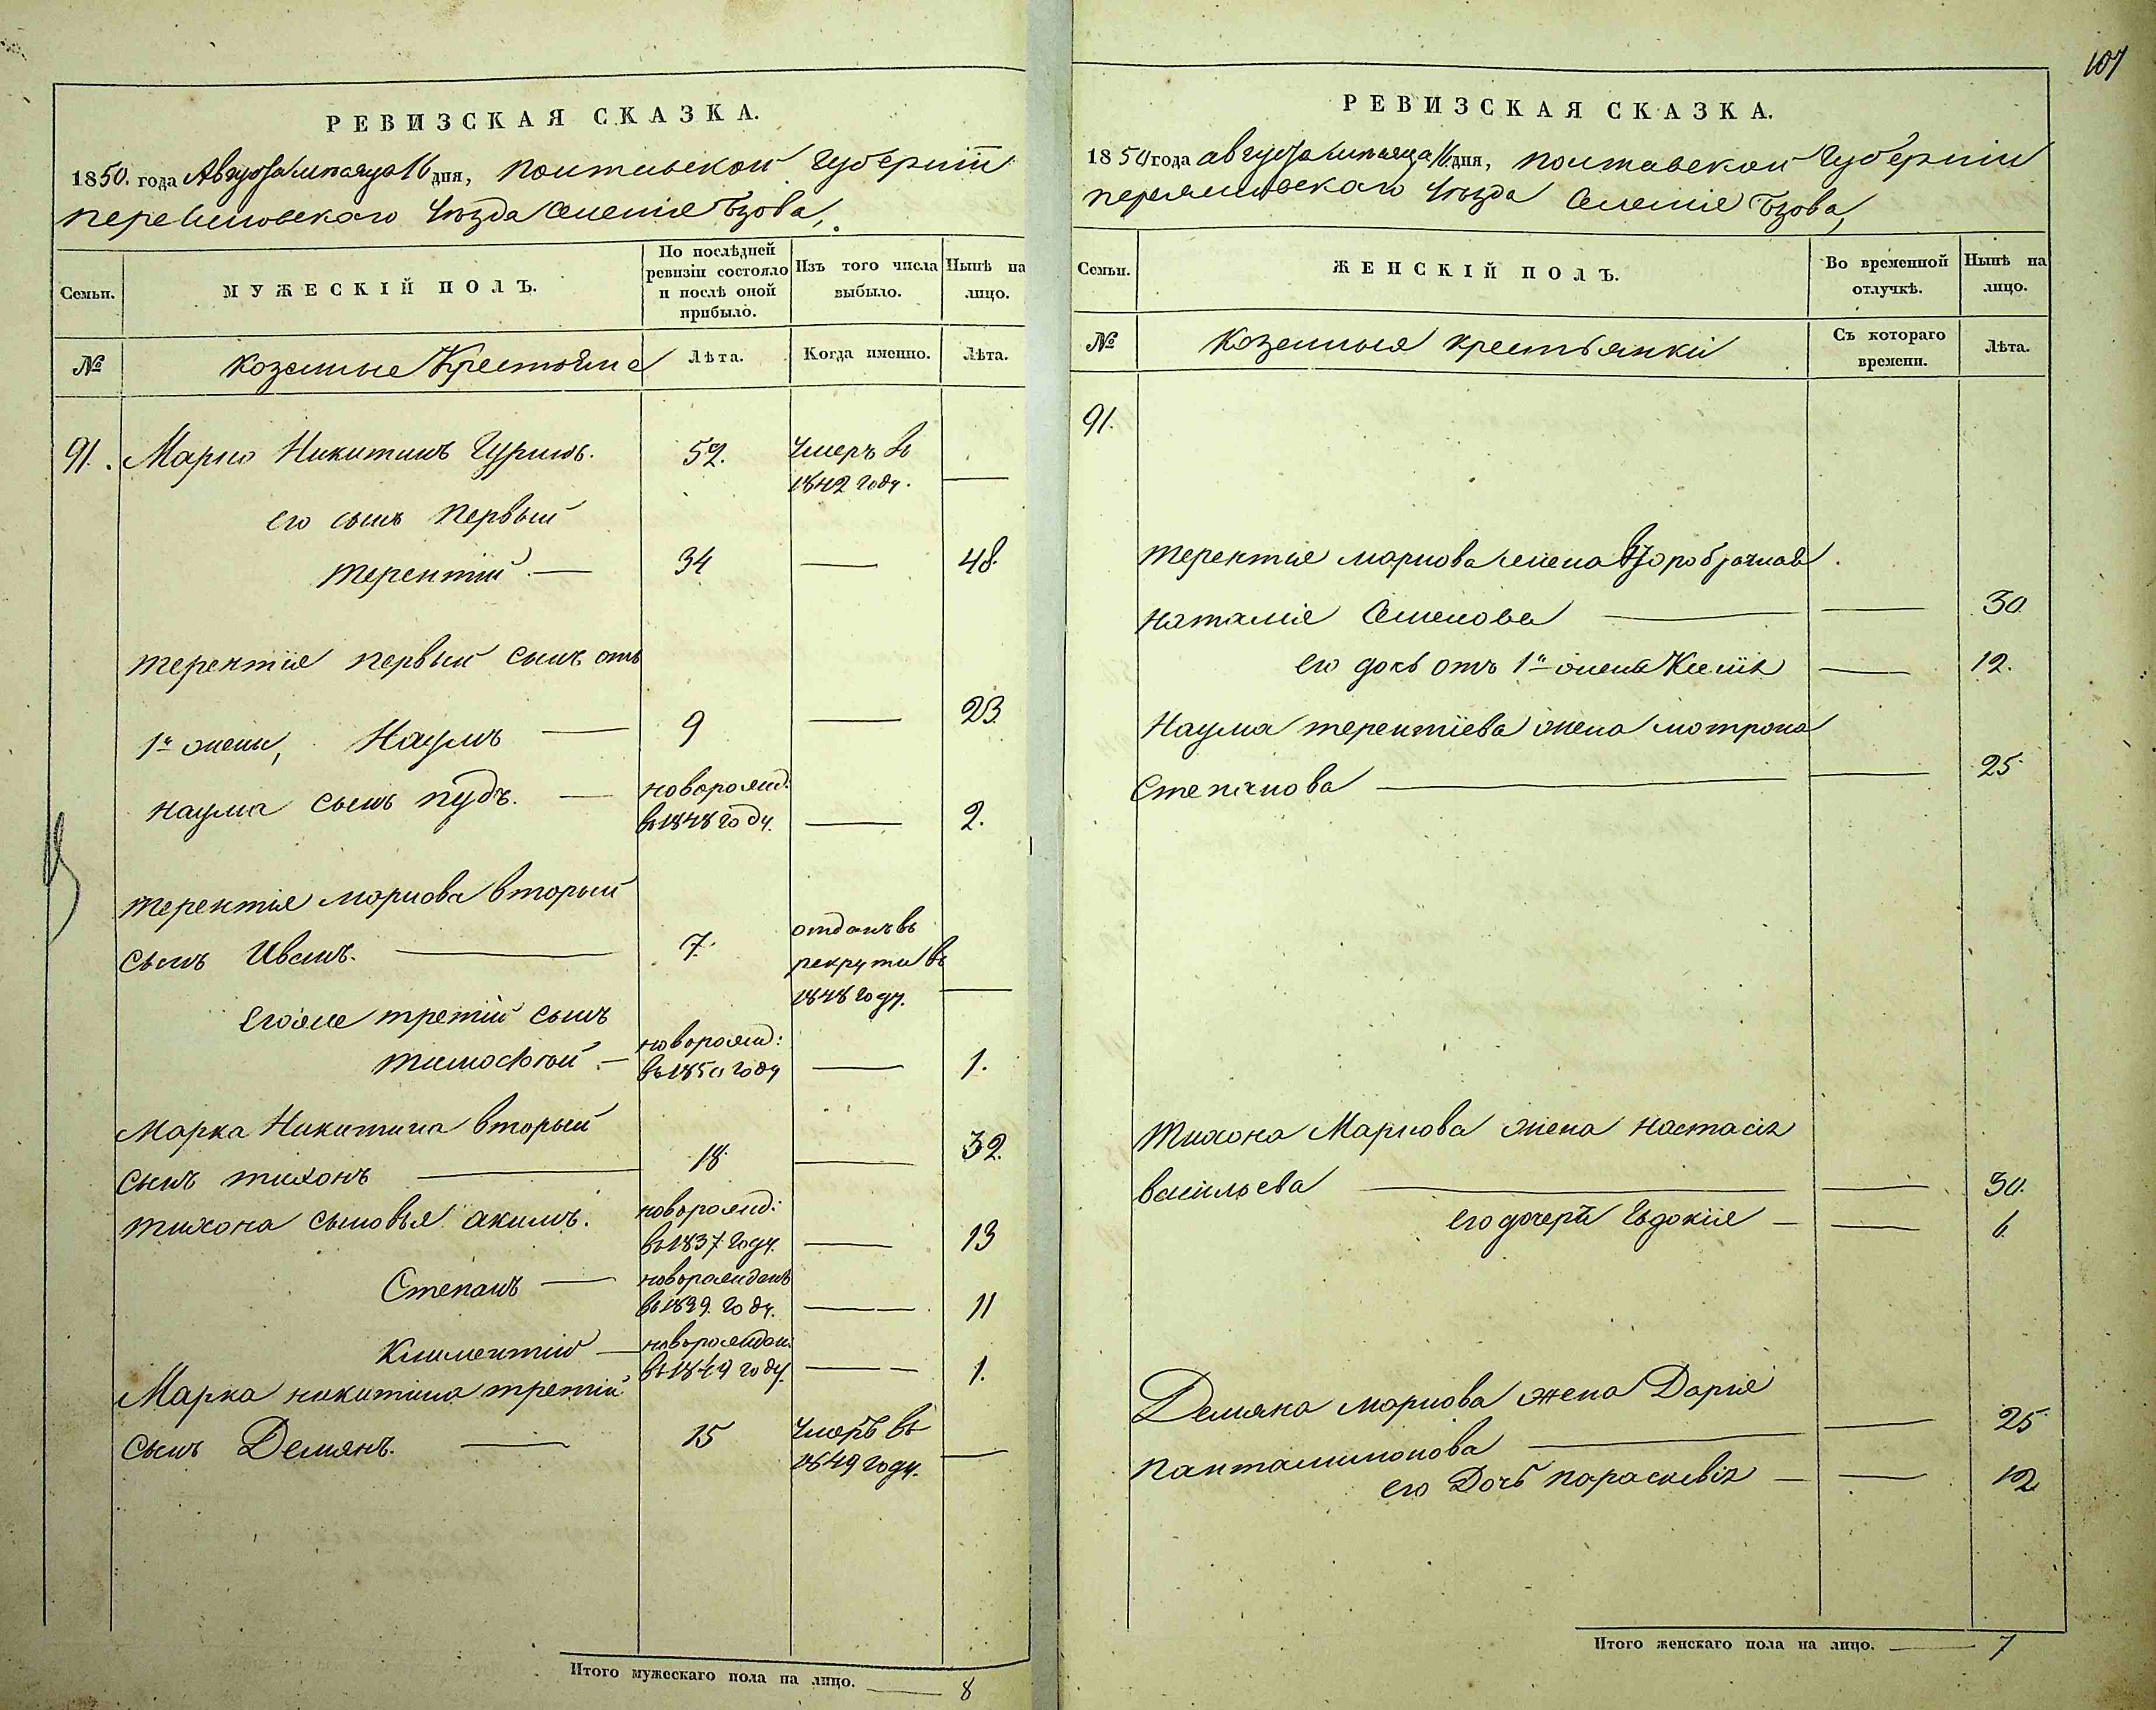 107
РЕВИЗСКАЯ СКАЗКА.
1850. года Августа месяца 16 дня, Полтавской Губернии
Переяславского Уѣзда Селенiе Бзова,
Семьи.
МУЖЕСКІЙ ПОЛЪ.
По послѣдней ревизіи состояло и послѣ оной прибыло.
Изъ того числа выбыло.
Нынѣ на лицо.
№
Козенные Крестьяне
Лѣта.
Когда именно.
Лѣта.
91. Марко Никитинъ Гуринъ. 52. Умеръ въ
1842 году. —
его сынъ первый
терентiй — 34 — 48.
терентiя первый сынъ отъ
1й жены, Наумъ — 9 — 23
наума сынъ пудъ. — новорожд:
въ 1848 году. — 2.
терентiя маркова вторый
сынъ Иванъ. — 7. отданъ въ
рекруты въ
1848 году. —
его же третiй сынъ
тимофей — новорожд:
въ 1850 году — 1.
Марка Никитина вторый
сынъ тихонъ — 18. — 32.
тихона сыновья акимъ. новорожд:
въ 1837 году. — 13
Степанъ — новорожденъ
въ 1839. году. — 11
Климентiй — новорожден:
въ 1849 году. — 1.
Марка никитина третiй
сынъ Демянъ. — 15 Умеръ въ
1849 году. —
Итого мужескаго пола на лицо. — 8
РЕВИЗСКАЯ СКАЗКА.
1850 года августа месяца 16 дня, полтавской Губернiи
переяславского Уѣзда Селенiе Бзова,
Семьи.
ЖЕНСКІЙ ПОЛЪ.
Во временной отлучкѣ.
Нынѣ на лицо.
№
Козенныя крестьянки
Съ котораго времени.
Лѣта.
91.
терентiя маркова жена второбрачная
наталiя Семенова — — 30.
его дочь отъ 1й жены — 12.
Наума терентiева жена мотрона
Степанова — — 25.
тихона Маркова жена настасiя
васильева — — 30.
его дочерь Евдокiя — — 6.
Демяна маркова жена Дарiя
панталимонова — — 25
его Дочь параскевiя — — 12
Итого женскаго пола на лицо. — 7